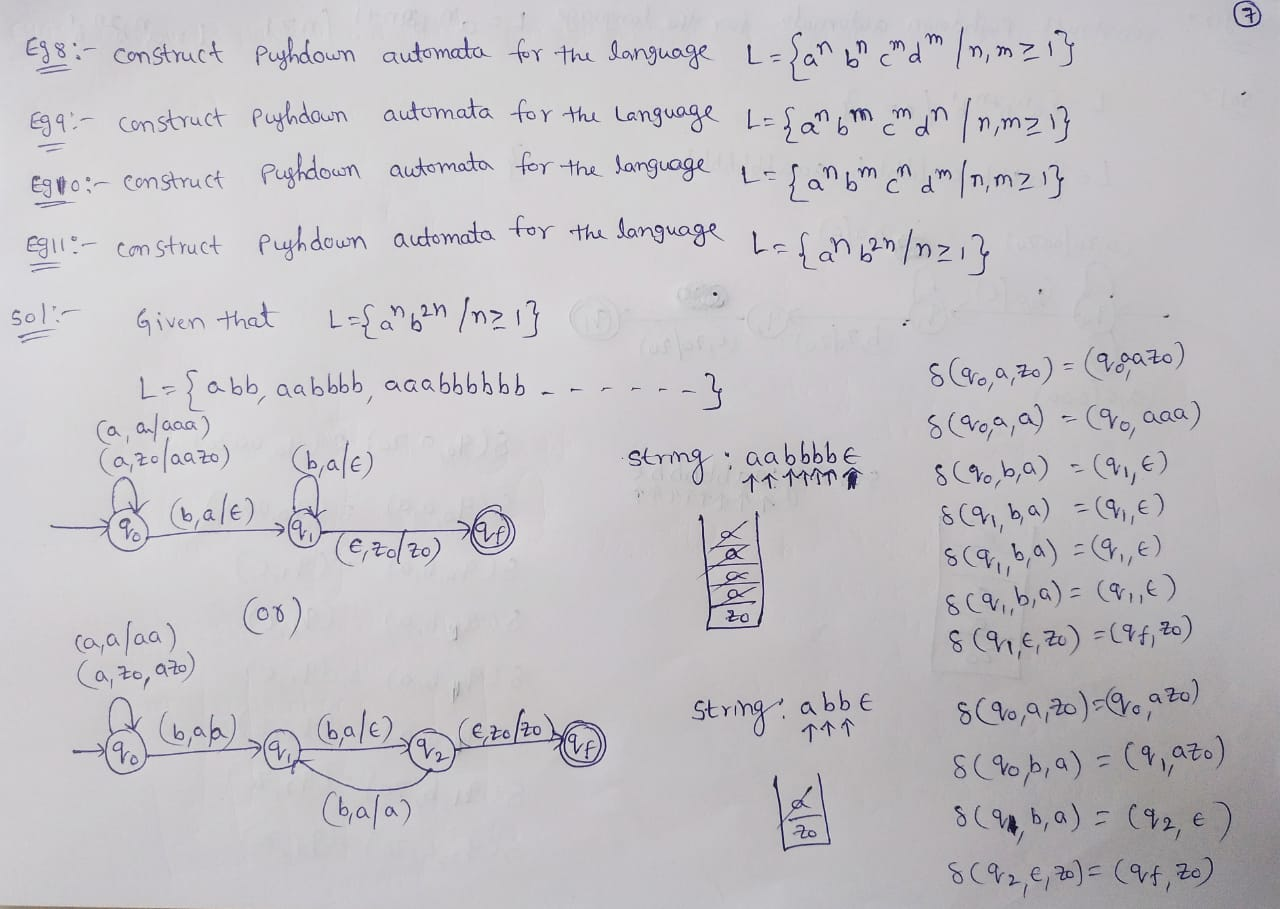 7
Eg8:- construct Pushdown automata for the language L = {aⁿ bⁿ cᵐ dᵐ / n,m ≥ 1}
Eg9:- construct Pushdown automata for the Language L = {aⁿ bᵐ cᵐ dⁿ / n,m ≥ 1}
Eg10:- construct Pushdown automata for the language L = {aⁿ bᵐ cⁿ dᵐ / n,m ≥ 1}
Eg11:- construct Pushdown automata for the language L = {aⁿ b²ⁿ / n ≥ 1}
Sol:- Given that L = {aⁿ b²ⁿ / n ≥ 1}
L = {abb, aabbbb, aaabbbbbb - - - - - - -}
(a, a/aaa)
(a, z₀/aaz₀) (b,a/ε)
q₀ (b,a/ε) q₁ (ε, z₀/z₀) qf
string : aabbbbε
↑↑↑↑↑↑↑
a
a
a
a
z₀
δ(q₀,a,z₀) = (q₀,aaz₀)
δ(q₀,a,a) = (q₀, aaa)
δ(q₀,b,a) = (q₁,ε)
δ(q₁,b,a) = (q₁,ε)
δ(q₁,b,a) = (q₁,ε)
δ(q₁,b,a) = (q₁,ε)
δ(q₁,ε,z₀) = (qf,z₀)
(or)
(a,a/aa)
(a,z₀,az₀)
q₀ (b,a/a) q₁ (b,a/ε) q₂ (ε,z₀/z₀) qf
(b,a/a)
string: abbε
↑↑↑
a
z₀
δ(q₀,a,z₀) = (q₀,az₀)
δ(q₀,b,a) = (q₁,az₀)
δ(q₁,b,a) = (q₂,ε)
δ(q₂,ε,z₀) = (qf,z₀)